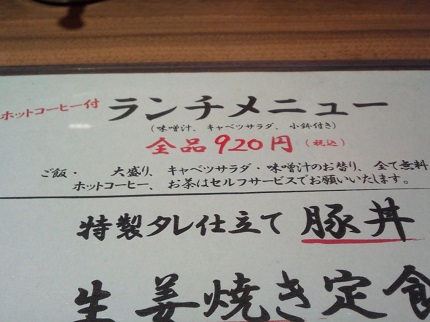 ホットコーヒー付 ランチメニュー
(味噌汁、キャベツサラダ、小鉢付き)
全品920円(税込)
ご飯・ 大盛り、キャベツサラダ・味噌汁のお替り、全て無料
ホットコーヒー、お茶はセルフサービスでお願いいたします。
特製タレ仕立て 豚丼
生姜焼き定食